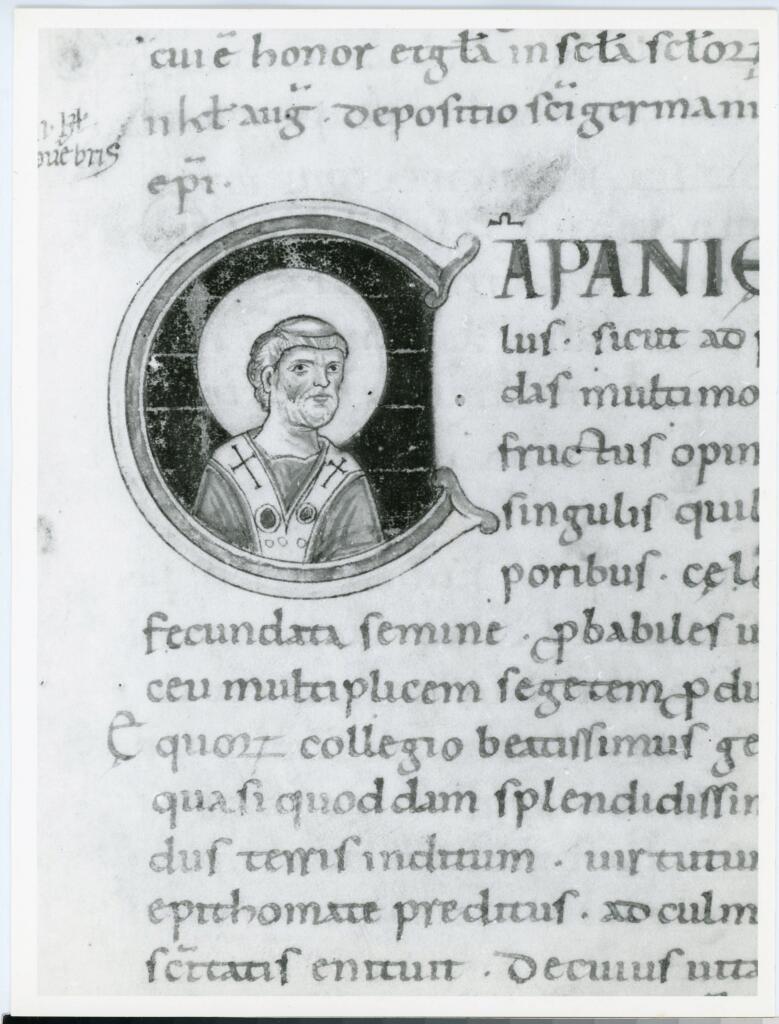 cui ē honor etgl̄a in scl̄a scl̄oꝝ
n kl̄ aug̅. depositio sc̄i germani
ep̄i.
n. kl̄
ouēbris
CĀPANIĘ
lus. sicut ad
das multimo
fructus opim
singulis quil
poribus. cęle
fecundata semine. ꝓbabiles u
ceu multiplicem segetem ꝓdu
E quoꝝ collegio beatissimus ge
quasi quoddam splendidissim
dus terris inditum. uirtutum
epithomate preditus. ad culm
sc̄itatis enituit. De cuius uita